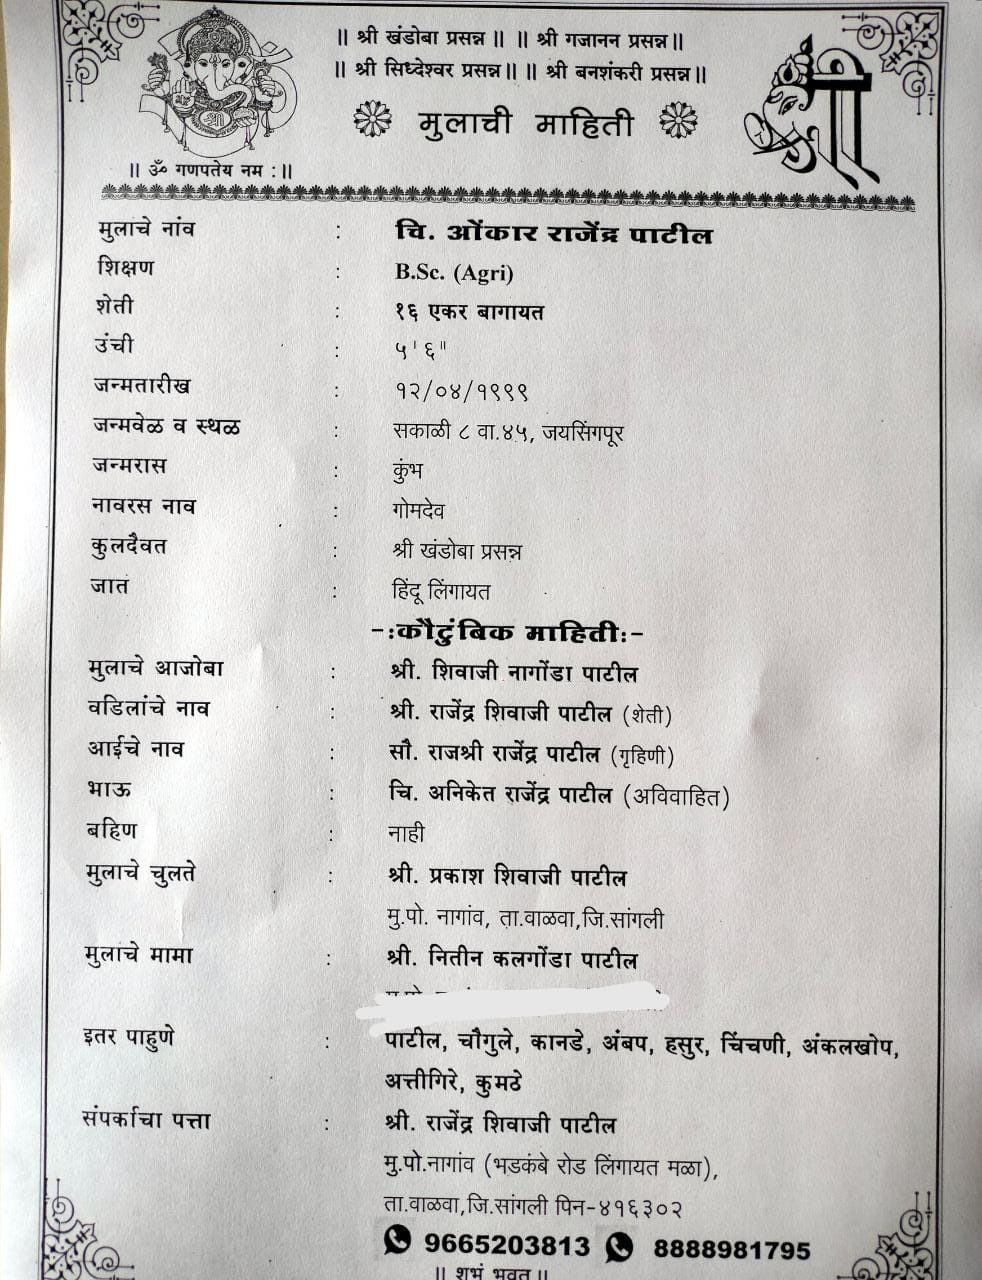 || श्री खंडोबा प्रसन्न || || श्री गजानन प्रसन्न||
|| श्री सिध्देश्वर प्रसन्न|| || श्री बनशंकरी प्रसन्न||
श्री
मुलाची माहिती
श्री
|| ॐ गणपतेय नम :||
मुलाचे नांव : चि. ओंकार राजेंद्र पाटील
शिक्षण : B.Sc. (Agri)
शेती : १६ एकर बागायत
उंची : ५' ६"
जन्मतारीख : १२/०४/१९९९
जन्मवेळ व स्थळ : सकाळी ८ वा.४५, जयसिंगपूर
जन्मरास : कुंभ
नावरस नाव : गोमदेव
कुलदैवत : श्री खंडोबा प्रसन्न
जात : हिंदू लिंगायत
-:कौटुंबिक माहिती:-
मुलाचे आजोबा : श्री. शिवाजी नागोंडा पाटील
वडिलांचे नाव : श्री. राजेंद्र शिवाजी पाटील (शेती)
आईचे नाव : सौ. राजश्री राजेंद्र पाटील (गृहिणी)
भाऊ : चि. अनिकेत राजेंद्र पाटील (अविवाहित)
बहिण : नाही
मुलाचे चुलते : श्री. प्रकाश शिवाजी पाटील
मु.पो. नागांव, ता.वाळवा,जि.सांगली
मुलाचे मामा : श्री. नितीन कलगोंडा पाटील
इतर पाहुणे : पाटील, चौगुले, कानडे, अंबप, हसुर, चिंचणी, अंकलखोप,
अत्तीगिरे, कुमठे
संपर्काचा पत्ता : श्री. राजेंद्र शिवाजी पाटील
मु.पो.नागांव (भडकंबे रोड लिंगायत मळा),
ता.वाळवा,जि.सांगली पिन-४१६३०२
9665203813 8888981795
|| शुभं भवतु ||